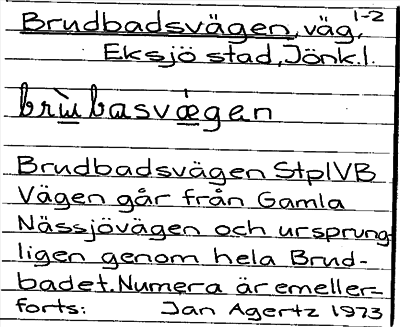 1-2
Brudbadsvägen, väg,
Eksjö stad, Jönk.l.
brù basvǽgen
Brudbadsvägen StplVB
Vägen går från Gamla
Nässjövägen och ursprung-
ligen genom hela Brud-
badet. Numera är emeller-
forts: Jan Agertz 1973